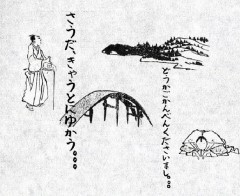 どうかごかんべんくださいまし。。
さうだ、きゃうとにゆかう。。。